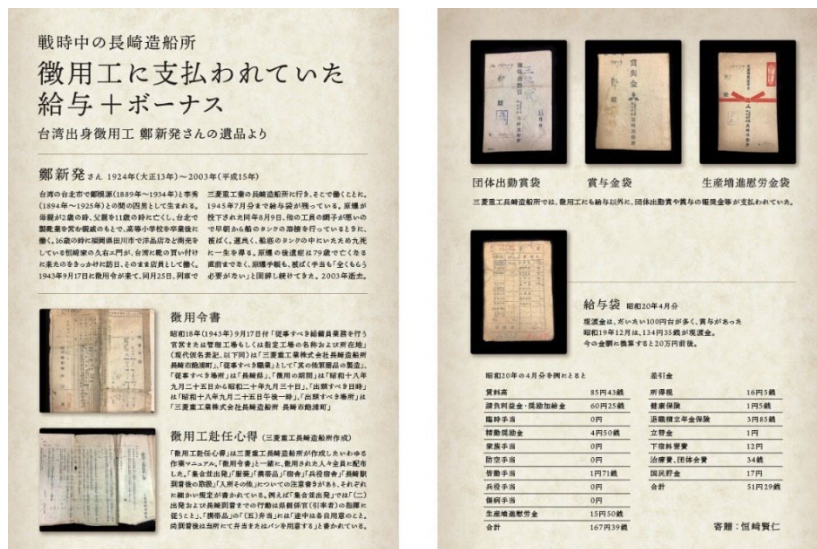 戦時中の長崎造船所
徴用工に支払われていた
給与＋ボーナス
台湾出身徴用工 鄭新発さんの遺品より
鄭新発さん 1924年（大正13年）～2003年（平成15年）
台湾の台北市で鄭根源（1889年～1934年）と李秀
（1894年～1925年）との間の四男として生まれる。
母親が2歳の時、父親を11歳の時に亡くし、台北で
製靴業を営む親戚のもとで、高等小学校を卒業後に
働く。16歳の時に福岡県田川市で洋品店など商売を
している恒崎家の久右ヱ門が、台湾に靴の買い付け
に来たのをきっかけに訪日、そのまま店員として働く。
1943年9月17日に徴用令が来て、同月25日、列車で
三菱重工業の長崎造船所に行き、そこで働くことに。
1945年7月分まで給与袋が残っている。原爆が
投下された同年8月9日、他の工員の調子が悪いの
で早朝から船のタンクの溶接を行っているときに、
被ばく。運良く、船底のタンクの中にいたため九死
に一生を得る。原爆の後遺症は79歳で亡くなる
直前までなく、原爆手帳も、被ばく手当も「全くもらう
必要がない」と固辞し続けてきた。2003年逝去。
徴用令書
昭和18年（1943年）9月17日付「従事すべき総動員業務を行う
官衙または管理工場もしくは指定工場の名称および所在地」
（現代仮名表記、以下同）は「三菱重工業株式会社長崎造船所
長崎市飽浦町」、「従事すべき職業」として「其の他軍需品の製造」、
「従事すべき場所」は「長崎県」、「徴用の期間」は「昭和十八年
九月二十五日から昭和二十年九月三十日」、「出頭すべき日時」
は「昭和十八年九月二十五日午後一時」、「出頭すべき場所」は
「三菱重工業株式会社長崎造船所 長崎市飽浦町」
徴用工赴任心得（三菱重工長崎造船所作成）
「徴用工赴任心得」は三菱重工長崎造船所が作成したいわゆる
作業マニュアル。「徴用令書」と一緒に、徴用された人々全員に配布
した。「集合並出発」「服装」「携帯品」「宿舎」「兵役宿舎」「長崎駅
到着後の順路」「入所その他」についての注意書きがあり、それぞれ
に細かい規定が書かれている。例えば「集合並出発」では「（二）
出発および長崎到着までの行動は県係官（引率者）の指揮に
従うこと」、「携帯品」の「（五）弁当」には「途中は各自用意のこと。
尚到着後は当所にて弁当またはパンを用意する」と書かれている。
賞与金
団体出勤賞袋
賞与金袋
生産増進慰労金袋
三菱重工長崎造船所では、徴用工にも給与以外に、団体出勤賞や賞与の報奨金等が支払われていた。
給与袋 昭和20年4月分
現渡金は、だいたい100円台が多く、賞与があった
昭和19年12月は、134円35銭が現渡金。
今の金額に換算すると20万円前後。
昭和20年の4月分を例にとると
賃料高 85円43銭
請負利益金・奨励加給金 60円25銭
臨時手当 0円
精勤奨励金 4円50銭
家族手当 0円
防空手当 0円
皆勤手当 1円71銭
兵役手当 0円
傷病手当 0円
生産増進慰労金 15円50銭
合計 167円39銭
差引金
所得税 16円5銭
健康保険 1円5銭
退職積立年金保険 3円85銭
立替金 1円
下宿料寮費 12円
治療費、団体会費 34銭
国民貯金 17円
合計 51円29銭
寄贈：恒崎賢仁